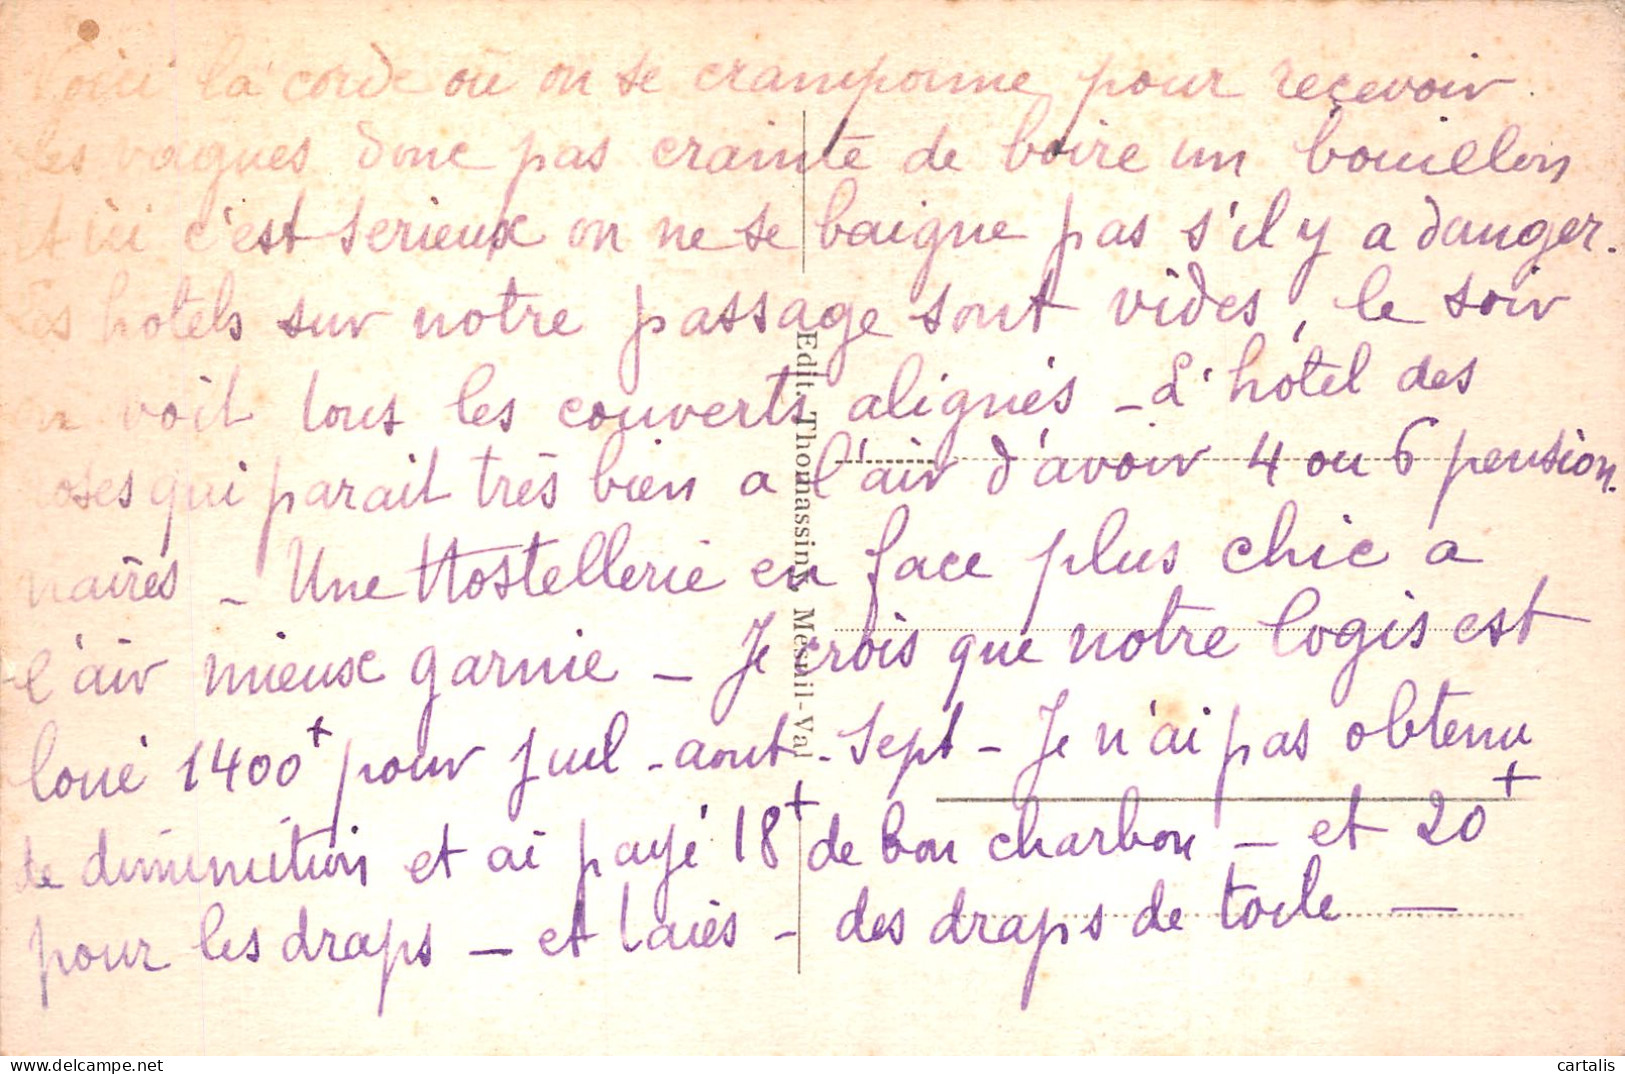 Voici la corde où on se cramponne pour recevoir
les vagues donc pas crainte de boire un bouillon
et ici c'est serieux on ne se baigne pas s'il y a danger.
Les hotels sur notre passage sont vides, le soir
on voit tous les couverts alignés - L'hôtel des
roses qui parait très bien a l'air d'avoir 4 ou 6 pension
naires - Une Hostellerie en face plus chic a
l'air mieux garnie - Je crois que notre logis est
loué 1400+ pour Juil - aout - Sept - Je n'ai pas obtenu
de diminution et ai payé 18+ de bon charbon - et 20+
pour les draps - et taies - des draps de toile -
Edit. Thomassink, Mesnil-Val
www.delcampe.net
cartalis